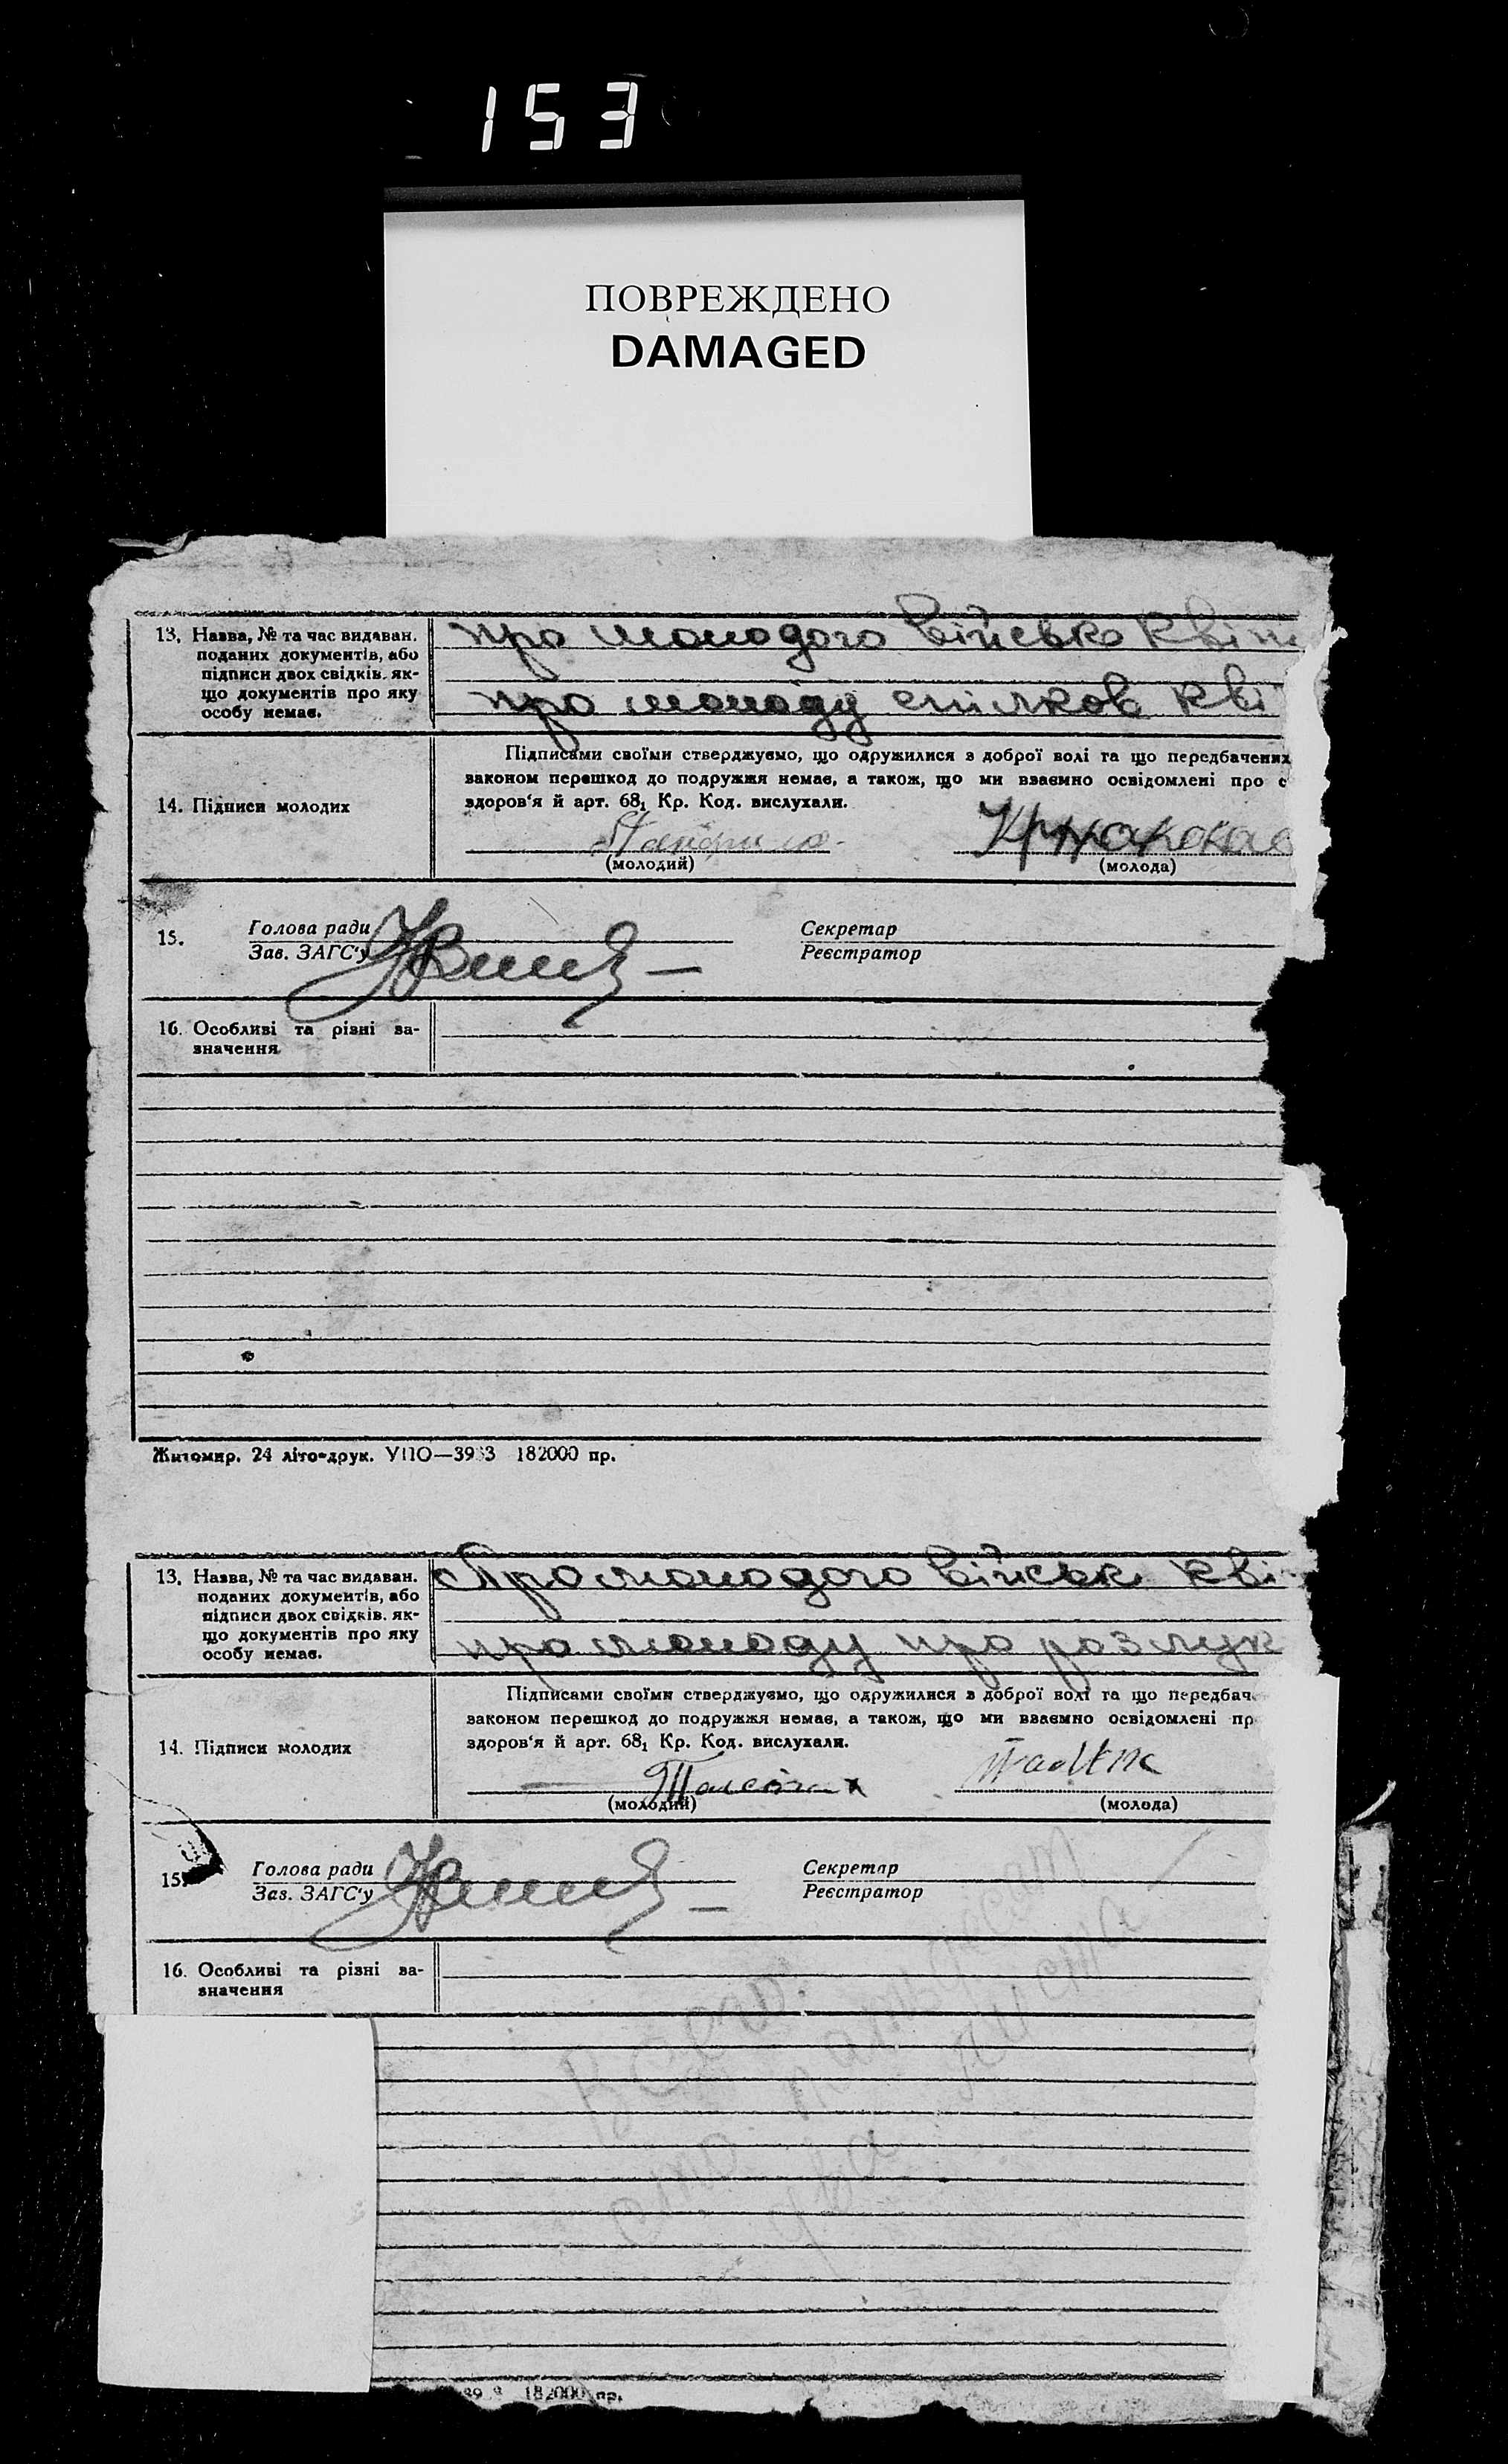 153
ПОВРЕЖДЕНО
DAMAGED
13. Назва, № та час видаван.
поданих документів, або
підписи двох свідків, як-
що документів про яку
особу немає.
про молодого військо квит
про молоду спілков кві
Підписами своїми стверджуємо, що одружилися з доброї волі та що передбачених
законом перешкод до подружжя немає, а також, що ми взаємно освідомлені про с
здоров'я й арт. 68₁ Кр. Код. вислухали.
14. Підписи молодих
(молодий) (молода)
15. Голова ради Секретар
Зав. ЗАГС'у Реєстратор
16. Особливі та різні за-
значення
Житомир. 24 літо-друк. УПО—39 3 182000 пр.
13. Назва, № та час видаван.
поданих документів, або
підписи двох свідків, як-
що документів про яку
особу немає.
Про молодого військ кві
про молоду про розлук
Підписами своїми стверджуємо, що одружилися з доброї волі та що передбач
законом перешкод до подружжя немає, а також, що ми взаємно освідомлені пр
здоров'я й арт. 68₁ Кр. Код. вислухали.
14. Підписи молодих
(молодий) (молода)
15. Голова ради Секретар
Зав. ЗАГС'у Реєстратор
16. Особливі та різні за-
значення
Всего
сто пятдесят
два листа
39 3 182000 пр.